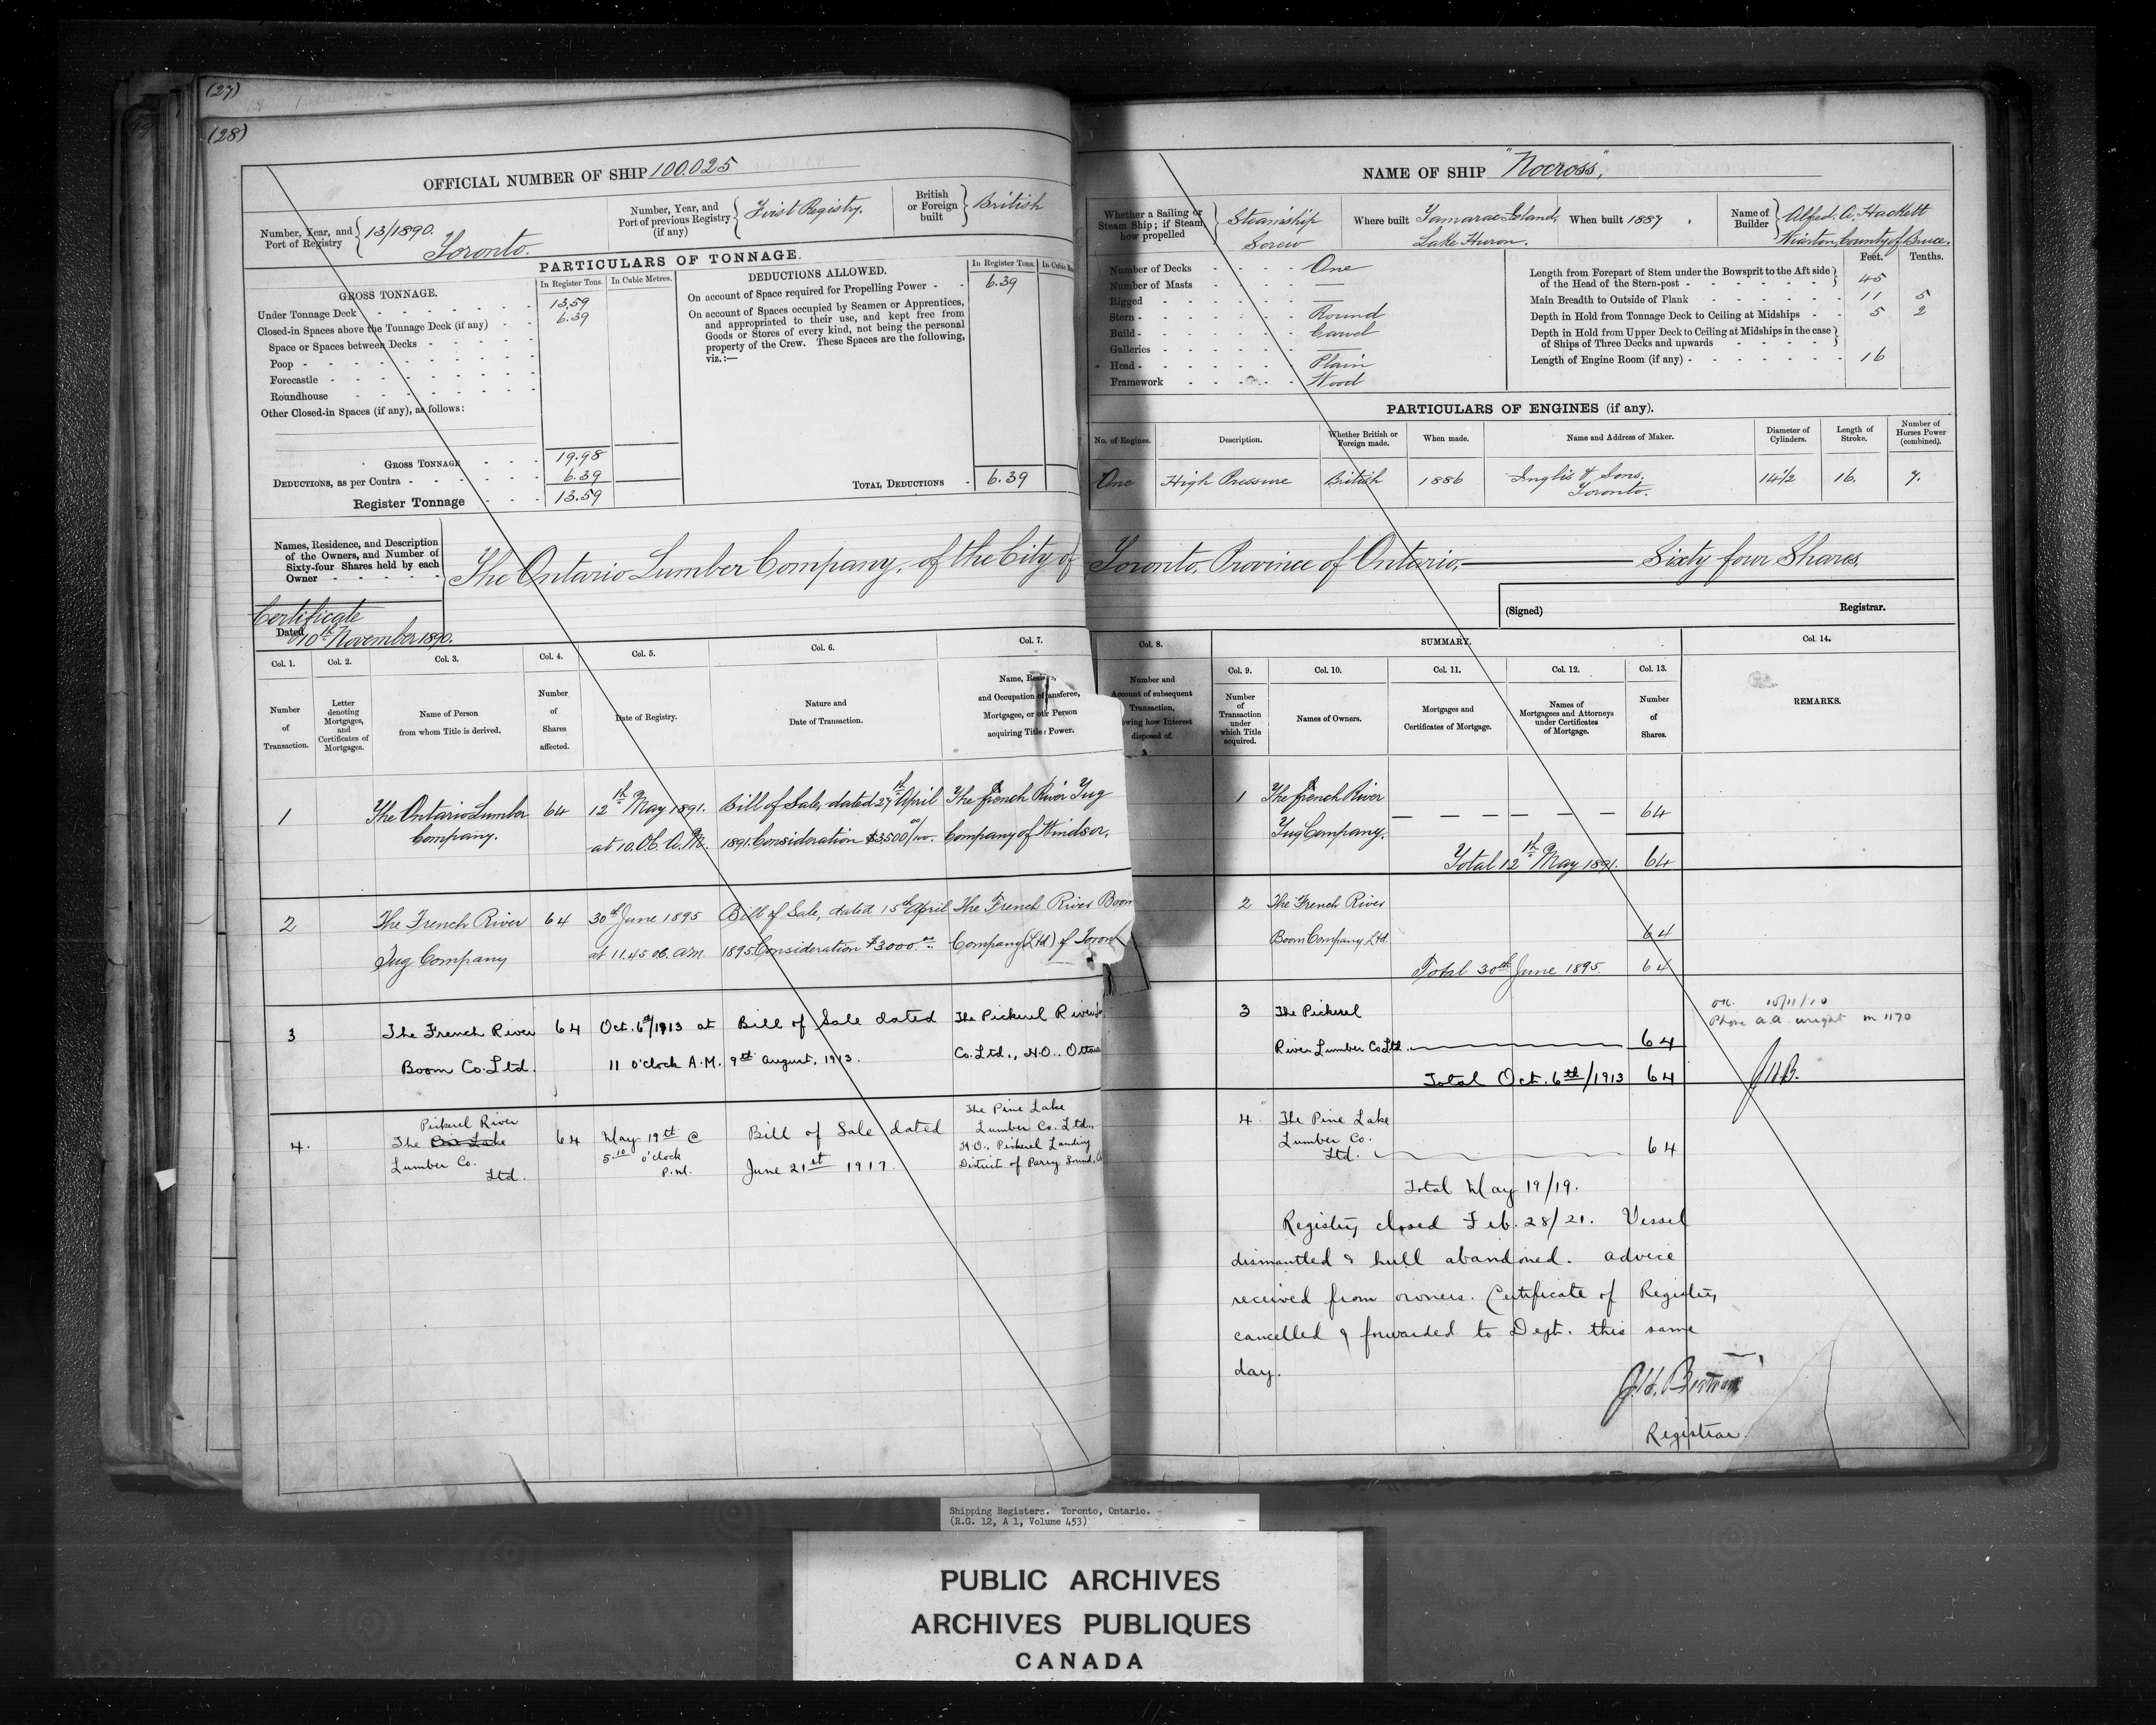 (27)
(28)
OFFICIAL NUMBER OF SHIP 100.025
Number, Year, and Port of Registry 13/1890. Toronto.
Number, Year, and Port of previous Registry (if any) First Registry.
British or Foreign built British
PARTICULARS OF TONNAGE.
GROSS TONNAGE.
In Register Tons.
In Cubic Metres.
Under Tonnage Deck 13.59
Closed-in Spaces above the Tonnage Deck (if any) 6.39
Space or Spaces between Decks
Poop
Forecastle
Roundhouse
Other Closed-in Spaces (if any), as follows:
GROSS TONNAGE 19.98
DEDUCTIONS, as per Contra 6.39
Register Tonnage 13.59
DEDUCTIONS ALLOWED.
In Register Tons.
On account of Space required for Propelling Power 6.39
On account of Spaces occupied by Seamen or Apprentices,
and appropriated to their use, and kept free from
Goods or Stores of every kind, not being the personal
property of the Crew. These Spaces are the following,
viz.:—
TOTAL DEDUCTIONS 6.39
NAME OF SHIP "Nocross",
Whether a Sailing or Steam Ship; if Steam how propelled Steamship Screw
Where built Tamarac Island, Lake Huron.
When built 1887.
Name of Builder Alfred. A. Hackett Wiarton, County of Bruce.
Number of Decks One
Number of Masts —
Rigged —
Stern Round
Build Carvel
Galleries —
Head Plain
Framework Wood
Feet. Tenths.
Length from Forepart of Stem under the Bowsprit to the Aft side of the Head of the Stern-post 45
Main Breadth to Outside of Plank 11 5
Depth in Hold from Tonnage Deck to Ceiling at Midships 5 2
Depth in Hold from Upper Deck to Ceiling at Midships in the case of Ships of Three Decks and upwards
Length of Engine Room (if any) 16
PARTICULARS OF ENGINES (if any).
No. of Engines. Description. Whether British or Foreign made. When made. Name and Address of Maker. Diameter of Cylinders. Length of Stroke. Number of Horses Power (combined).
One High Pressure British 1886 Inglis & Sons, Toronto. 14½ 16. 7.
Names, Residence, and Description
of the Owners, and Number of
Sixty-four Shares held by each
Owner
The Ontario Lumber Company, of the City of Toronto, Province of Ontario, — Sixty four Shares,
Certificate
Dated 10th November 1890.
(Signed) Registrar.
Col. 1. Col. 2. Col. 3. Col. 4. Col. 5. Col. 6. Col. 7. Col. 8.
SUMMARY.
Col. 9. Col. 10. Col. 11. Col. 12. Col. 13. Col. 14.
Number of Transaction.
Letter denoting Mortgages, and Certificates of Mortgages.
Name of Person from whom Title is derived.
Number of Shares affected.
Date of Registry.
Nature and Date of Transaction.
and Occupation of Transferee,
Mortgagee, or other Person
acquiring Title Power.
Number and
Account of subsequent
Transaction,
owing how Interest
disposed of.
Number of Transaction under which Title acquired.
Names of Owners.
Mortgages and Certificates of Mortgage.
Names of Mortgagees and Attorneys under Certificates of Mortgage.
Number of Shares.
REMARKS.
1 The Ontario Lumber Company. 64 12th May 1891. at 10. O.C. A.M. Bill of Sale, dated 27th April 1891. Consideration $3,500 00/100. The French River Tug Company of Windsor.
1 The French River Tug Company. 64
Total 12th May 1891. 64
2 The French River Tug Company 64 30th June 1895 at 11.45 oc. am Bill of Sale, dated 15th April 1895 Consideration $3000.00 The French River Boom Company (Ltd) of Toront
2 The French River Boom Company Ltd. 64
Total 30th June 1895. 64
3 The French River Boom Co. Ltd. 64 Oct. 6th/1913 at 11 o'clock A.M. Bill of Sale dated 9th August, 1913. The Pickerel River Co. Ltd., H.O. Ottawa
3 The Pickerel River Lumber Co Ltd. 64
Total Oct. 6th/1913 64
10/11/10
Phone A.A. Wright M 1170
JHB.
4. The Pickerel River Bis Lake Lumber Co. Ltd. 64 May 19th @ 5.10 o'clock P.M. Bill of Sale dated June 21st 1917. The Pine Lake Lumber Co. Ltd., H.O., Pickerel Landing District of Parry Sound,
4. The Pine Lake Lumber Co. Ltd. 64
Total May 19/19.
Registry closed Feb. 28/21. Vessel
dismantled & hull abandoned. advice
received from owners. Certificate of Registry
cancelled & forwarded to Dept. this same
day.
Registrar.
Shipping Registers. Toronto, Ontario.
(R.G. 12, A 1, Volume 453)
PUBLIC ARCHIVES
ARCHIVES PUBLIQUES
CANADA